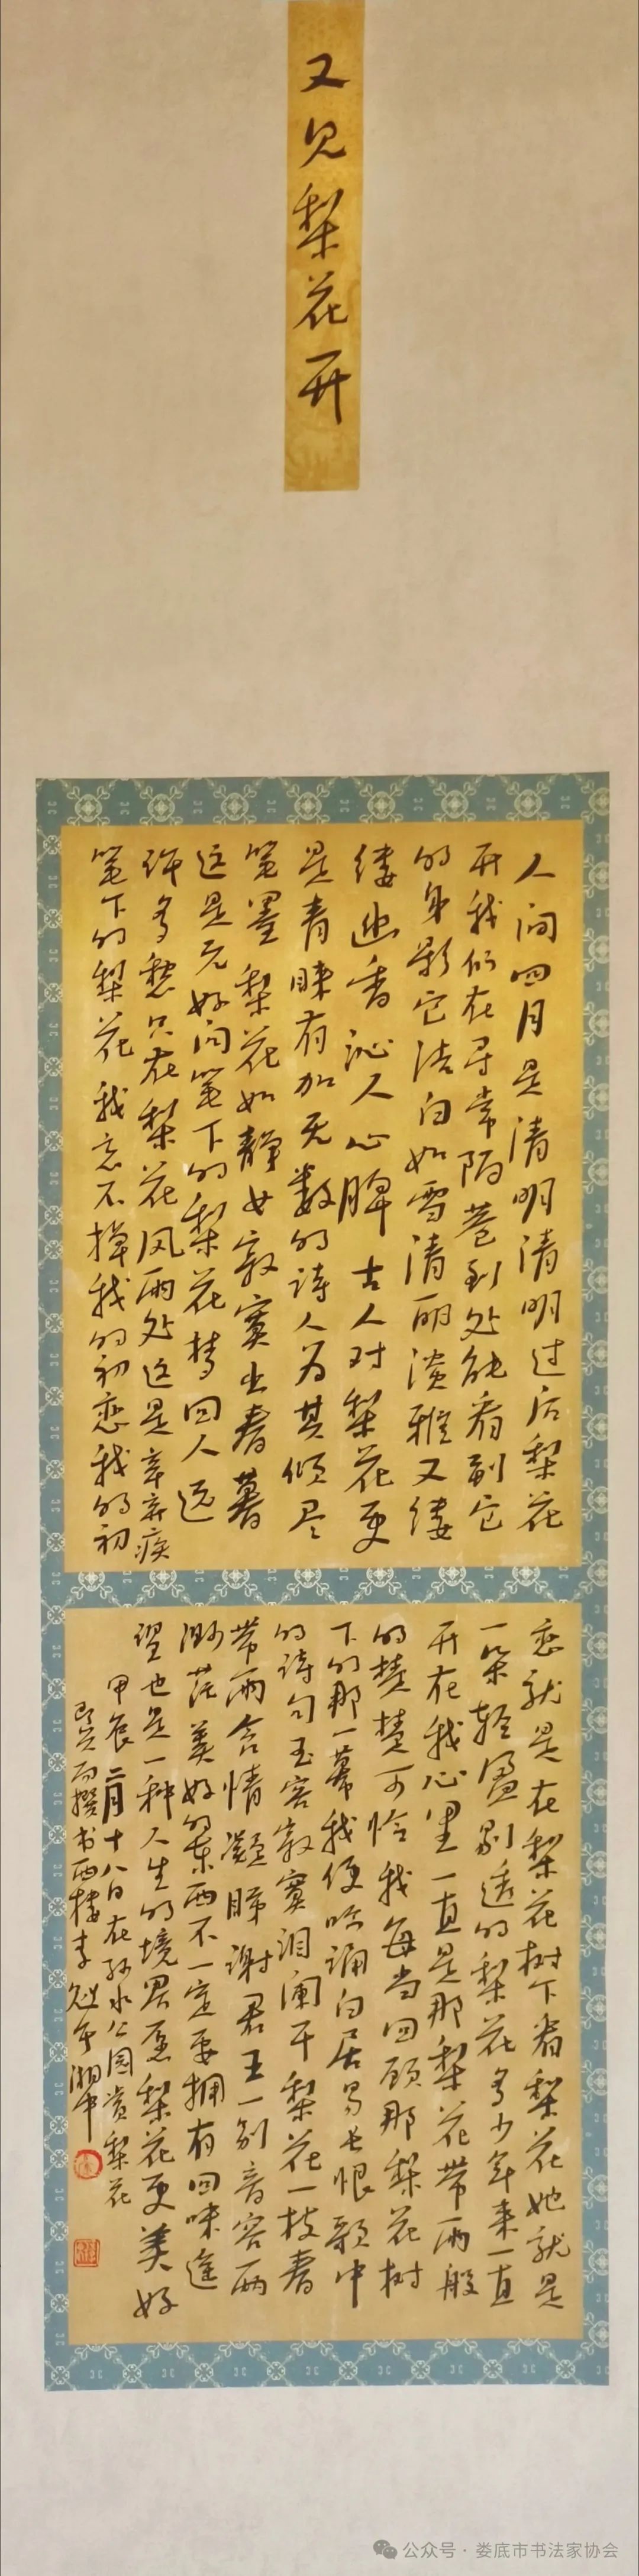 又见梨花开
人间四月是清明清明过后梨花
开我们在寻常陌巷到处能看到它
的身影它洁白如雪清丽淡雅又缕
缕幽香沁人心脾古人对梨花更
是青睐有加无数的诗人为其倾尽
笔墨梨花如静女寂寞出春暮
这是元好问笔下的梨花梦回人远
许多愁只在梨花风雨处这是辛弃疾
笔下的梨花我忘不掉我的初恋我的初
恋就是在梨花树下看梨花她就是
一朵轻盈剔透的梨花多少年来一直
开在我心里一直是那梨花带雨般
的楚楚可怜我每当回顾那梨花树
下的那一幕我便吟诵白居易长恨歌中
的诗句玉容寂寞泪阑干梨花一枝春
带雨含情凝睇谢君王一别音容两
渺茫美好的东西不一定要拥有回味遥
望也是一种人生的境界愿梨花更美好
甲辰二月十八日在孙水公园赏梨花
有感而撰书西楼李 于湘中
公众号·娄底市书法家协会